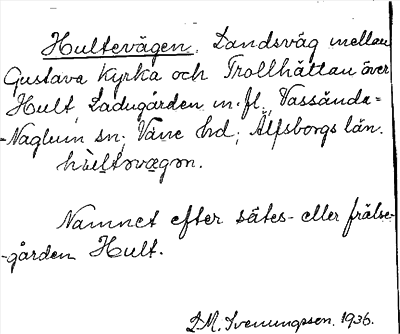 Hultevägen. Landsväg mellan
Gustava Kyrka och Trollhättan över
Hult, Ladugården m. fl., Vassända-
-Naglum sn; Väne hd; Älfsborgs län.
hùltəvægən.
Namnet efter sätes- eller frälse-
-gården Hult.
D. M. Svenungsson. 1936.